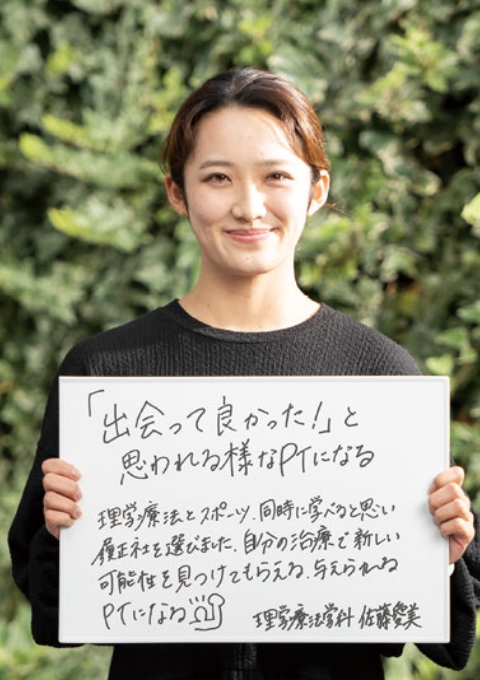 「出会って良かった!」と
思われる様なPTになる
理学療法とスポーツ、同時に学べると思い
履正社を選びました。自分の治療で新しい
可能性を見つけてもらえる、与えられる
PTになる
理学療法学科 佐藤愛美